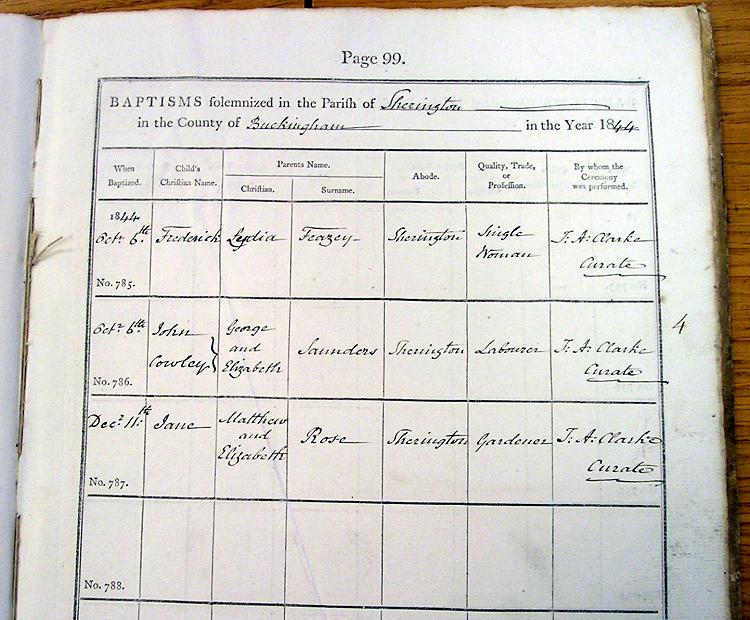 Page 99.
BAPTISMS solemnized in the Parish of Sherington
in the County of Buckingham in the Year 1844
When Baptized. Child's Christian Name. Parents Name. Abode. Quality, Trade, or Profession. By whom the Ceremony was performed.
Christian. Surname.
1844
Octr. 6th. Frederick Lydia Feazey Sherington Single Woman T. A. Clarke Curate
No. 785.
Octr. 6th John Cowley George and Elizabeth Saunders Sherington Labourer T. A. Clarke Curate
4
No. 786.
Decr. 11th. Jane Matthew and Elizabeth Rose Sherington Gardener T. A. Clarke Curate
No. 787.
No. 788.